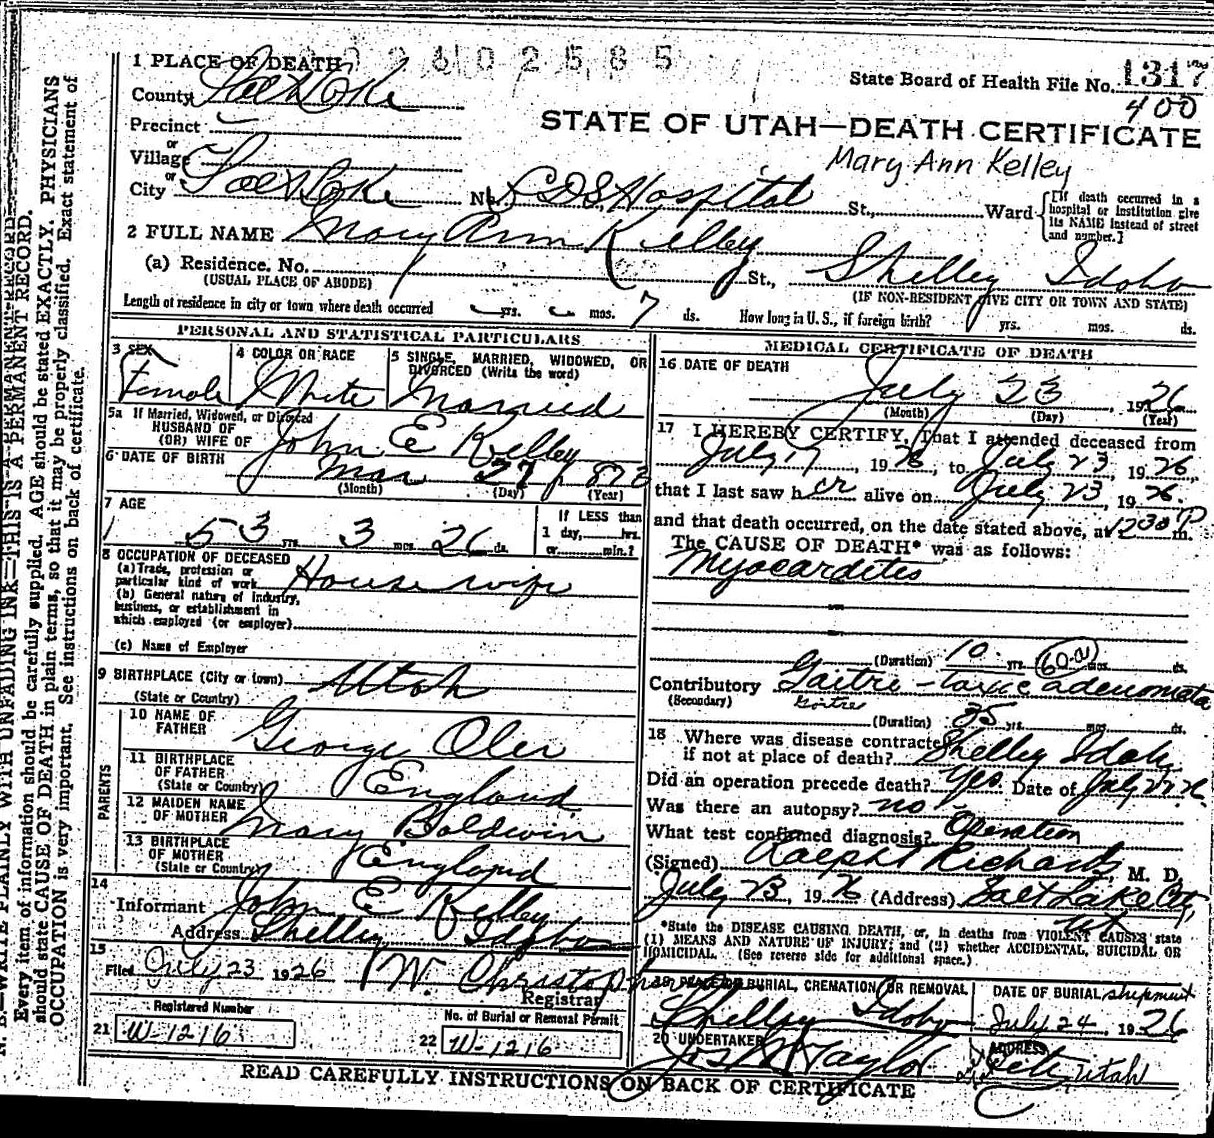 2602585
1 PLACE OF DEATH
State Board of Health File No. 1317
400
County Salt Lake
STATE OF UTAH—DEATH CERTIFICATE
Precinct
or
Village
Mary Ann Kelley
or
City Salt Lake No. LDS Hospital St., Ward
[If death occurred in a hospital or institution give its NAME instead of street and number.]
2 FULL NAME Mary Ann Kelley
(a) Residence, No. St., Shelley Idaho
(USUAL PLACE OF ABODE)
(IF NON-RESIDENT GIVE CITY OR TOWN AND STATE)
Length of residence in city or town where death occurred yrs. mos. 7 ds. How long in U.S., if foreign birth? yrs. mos. ds.
PERSONAL AND STATISTICAL PARTICULARS
3 SEX
Female
4 COLOR OR RACE
White
5 SINGLE, MARRIED, WIDOWED, OR DIVORCED (Write the word)
Married
5a If Married, Widowed, or Divorced
HUSBAND OF
(OR) WIFE OF John E Kelley
6 DATE OF BIRTH Mar 27 1873
(Month) (Day) (Year)
7 AGE
53 yrs. 3 mos. 26 ds.
If LESS than
1 day, hrs.
or min.?
8 OCCUPATION OF DECEASED
(a) Trade, profession or
particular kind of work House wife
(b) General nature of Industry,
business, or establishment in
which employed (or employer)
(c) Name of Employer
9 BIRTHPLACE (City or town) Utah
(State or Country)
PARENTS
10 NAME OF
FATHER George Oler
11 BIRTHPLACE
OF FATHER England
(State or Country)
12 MAIDEN NAME
OF MOTHER Mary Baldwin
13 BIRTHPLACE
OF MOTHER England
(State or Country)
14
Informant John E Kelley
Address Shelley Idaho
15
Filed July 23 1926 W. Christopherson
Registrar
Registered Number
21 W-1216
No. of Burial or Removal Permit
22 W-1216
MEDICAL CERTIFICATE OF DEATH
16 DATE OF DEATH
July 23, 1926
(Month) (Day) (Year)
17 I HEREBY CERTIFY, That I attended deceased from
July 17, 1926, to July 23 1926
that I last saw her alive on July 23, 1926.
and that death occurred, on the date stated above, at 1230 P m.
The CAUSE OF DEATH* was as follows:
Myocardites
(Duration) 10 yrs. 60-a mos. ds.
Contributory Goitre - toxic adenomata
(Secondary) Goitre
(Duration) 35 yrs. mos. ds.
18 Where was disease contracted
if not at place of death? Shelley Idaho
Did an operation precede death? Yes. Date of July 22 26.
Was there an autopsy? no
What test confirmed diagnosis? Operation
(Signed) Ralph T Richards, M. D.
July 23, 1926 (Address) Salt Lake City,
Utah
*State the DISEASE CAUSING DEATH, or, in deaths from VIOLENT CAUSES state
(1) MEANS AND NATURE OF INJURY; and (2) whether ACCIDENTAL, SUICIDAL OR
HOMICIDAL. (See reverse side for additional space.)
19 PLACE OF BURIAL, CREMATION OR REMOVAL
Shelley Idaho
DATE OF BURIAL shipment
July 24, 1926
20 UNDERTAKER
Jos Wm Taylor
ADDRESS
Utah
READ CAREFULLY INSTRUCTIONS ON BACK OF CERTIFICATE
N. B.—WRITE PLAINLY WITH UNFADING INK—THIS IS A PERMANENT RECORD.
Every item of information should be carefully supplied. AGE should be stated EXACTLY. PHYSICIANS
should state CAUSE OF DEATH in plain terms, so that it may be properly classified. Exact statement of
OCCUPATION is very important. See instructions on back of certificate.